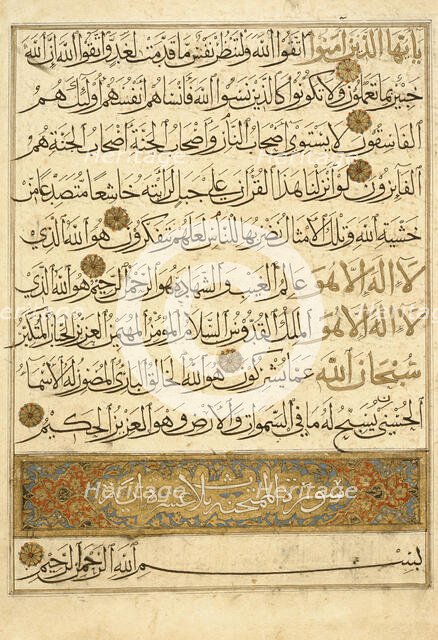 يا أيها الذين آمنوا اتقوا الله ولتنظر نفس ما قدمت لغد واتقوا الله إن الله
خبير بما تعملون ولا تكونوا كالذين نسوا الله فأنساهم أنفسهم أولئك هم
الفاسقون لا يستوي أصحاب النار وأصحاب الجنة أصحاب الجنة هم
الفايزون لو أنزلنا هذا القرآن على جبل لرأيته خاشعا متصدعا من
خشية الله وتلك الأمثال نضربها للناس لعلهم يتفكرون هو الله الذي
لا إله إلا هو عالم الغيب والشهادة هو الرحمن الرحيم هو الله الذي
لا إله إلا هو الملك القدوس السلام المؤمن المهيمن العزيز الجبار المتكبر
سبحان الله عما يشركون هو الله الخالق البارئ المصور له الأسماء
الحسنى يسبح له ما في السموات والأرض وهو العزيز الحكيم
سورة الممتحنة ثلاث عشرة آية
بسم الله الرحمن الرحيم
Heritage
Heritage
Heritage
Heritage
Heritage
Heritage